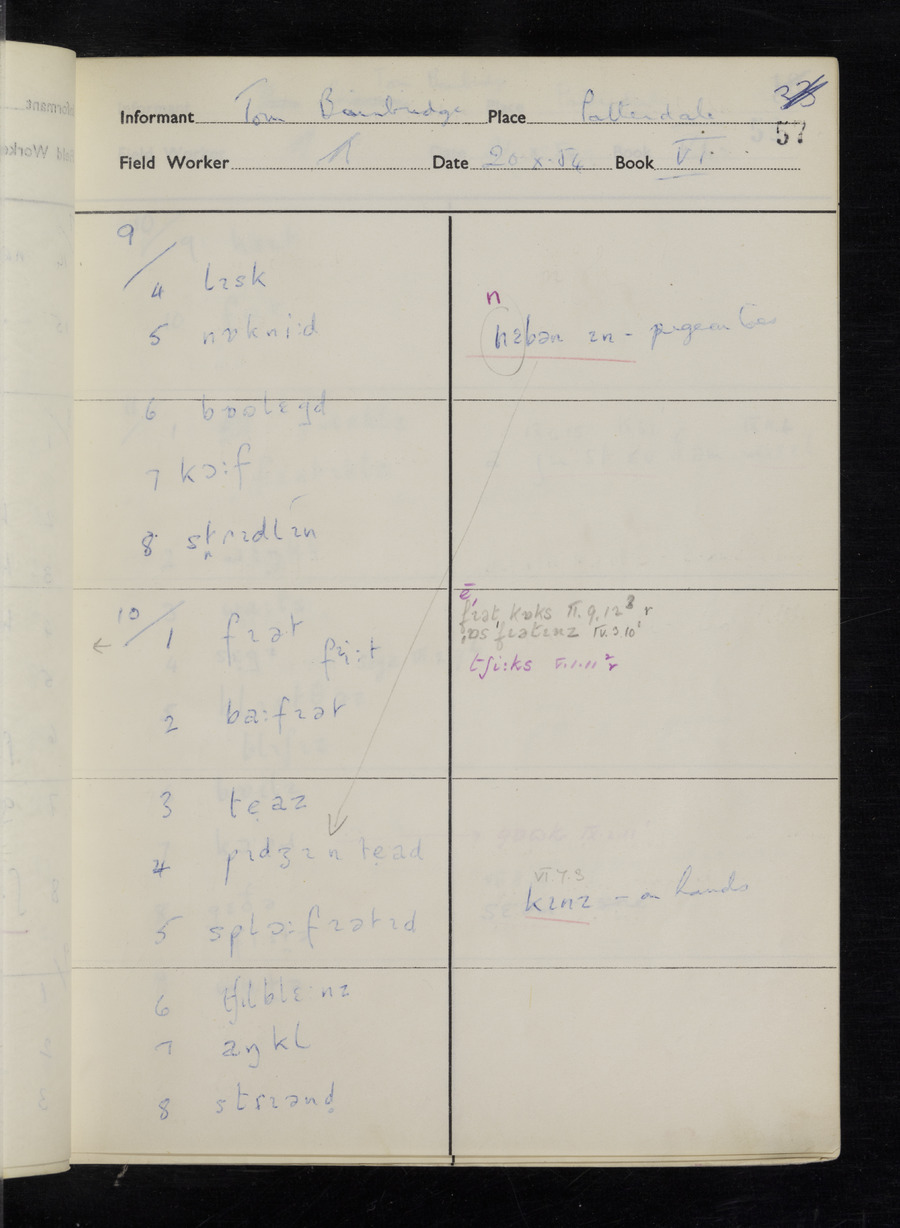 Informant Tom Bainbridge Place Patterdale
57
Field Worker Date 20-X-54 Book VI.
9/4 lɪsk
5 nɒkni:d
6 baolɛgd
7 kɔ:f
8 strɪdlɪn
10/1 fɪət
fɪ:t
2 ba:fɪət
3 tẹaz
4 pɪdʒɪn tẹad
5 splɔ:fɪətɪd
6 tʃɪlblɛɪnz
7 aŋkl
8 strɪənd
n
nɛbən ɪn - pigeon toe
fɪət, kɒks II.9.12³ r
fɪətɪnz IV.3.10¹
tʃi:ks V.1.11² r
VI.7.3
kɪnz - on hands